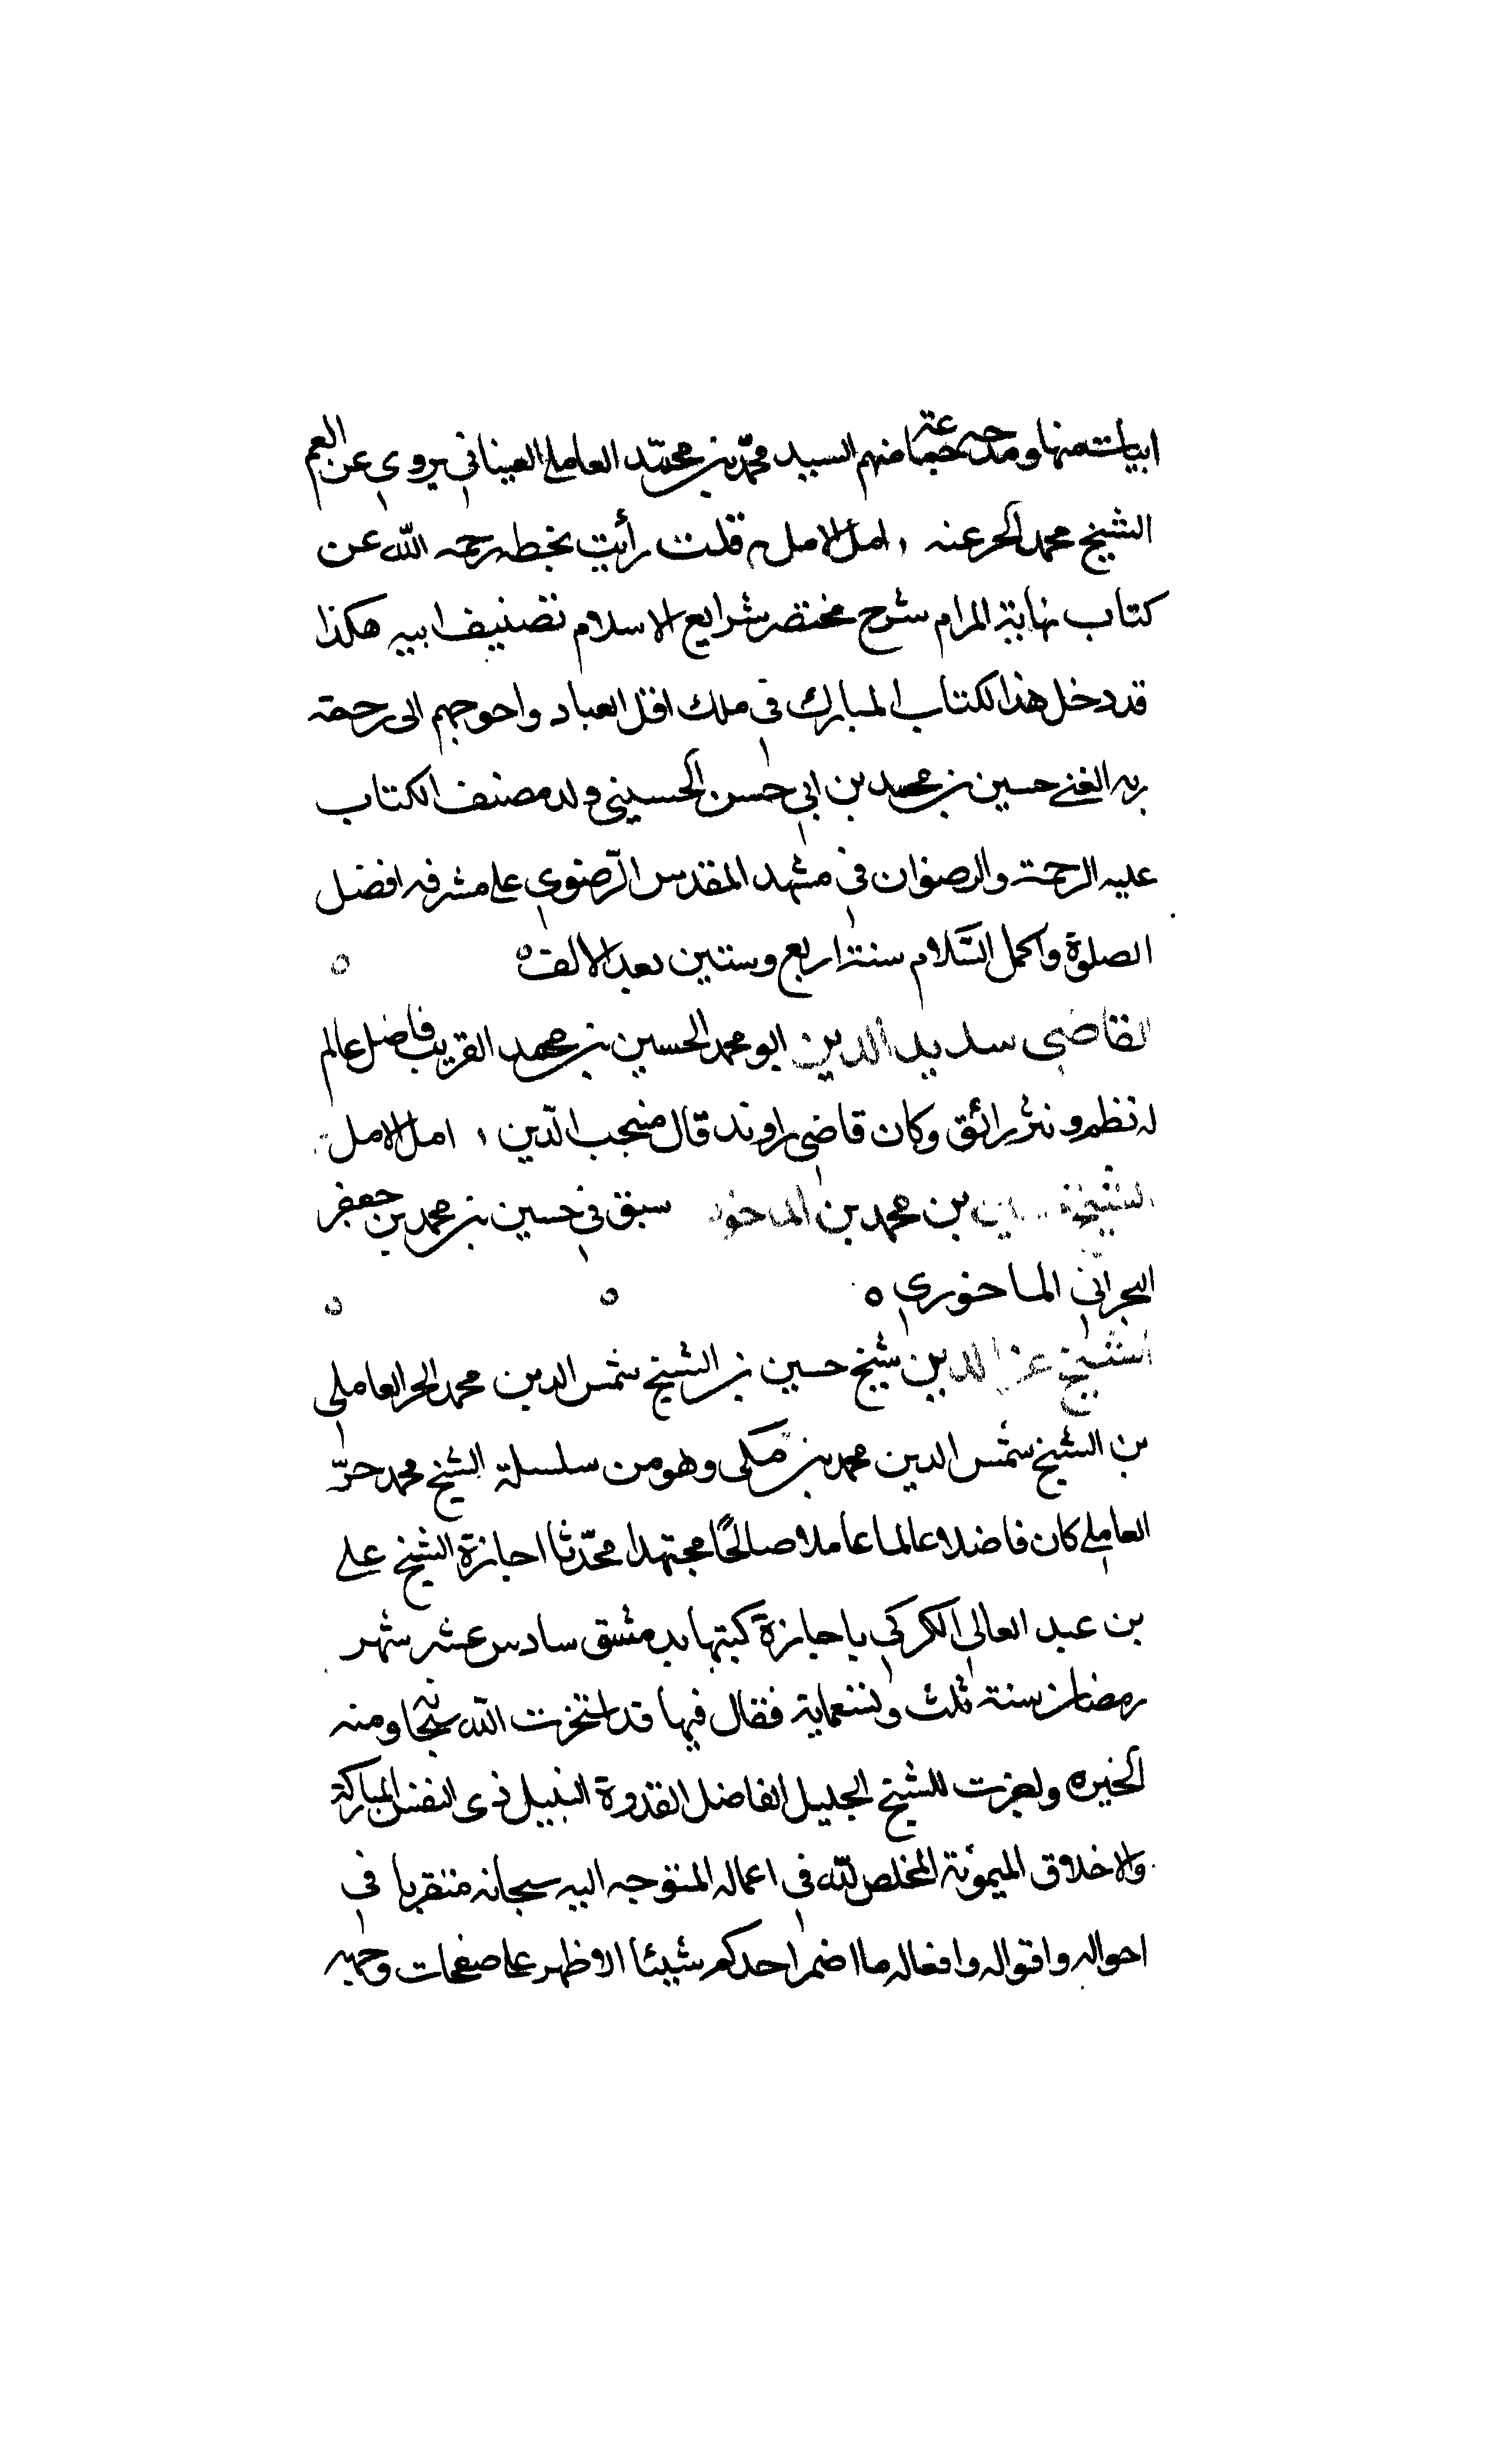 ابيات منها ومدحه جماعة منهم السيد محمّد بن محمّد العاملي العيناثي يروي عن العم
الشيخ محمد الحر عنه ، امل الامل قلت رأيت بخطه رحمه اللّه عن
كتاب نهاية المرام شرح مختصر شرايع الاسلام تصنيف ابيه هكذا
قد دخل هذا الكتاب المبارك في ملك اقل العباد واحوجهم الى رحمة
ربه الغني حسين بن محمد بن ابي حسن الحسيني ولد مصنف الكتاب
عليه الرحمة والرضوان في مشهد المقدس الرّضوي على مشرفه افضل
الصلوة واكمل السّلام سنة اربع وستين بعد الالف
القاضي سديد الدين ابو محمد الحسين بن محمد القريب فاضل عالم
له نظم ونثر رائق وكان قاضي راوند قال منتجب الدّين ، امل الامل
الشيخ بن محمد بن الماخوذ سبق في حسين بن محمد بن جعفر
البحراني الماخوري
الشيخ عز الدين شيخ حسين بن الشيخ شمس الدين محمد الحر العاملي
بن الشيخ شمس الدين محمد بن مكي وهو من سلسلة الشيخ محمد حرّ
العاملي كان فاضلا عالما عاملا صالحًا مجتهدا محّدثا اجازة الشيخ علي
بن عبد العالي الكركي باجازة كتبها بدمشق سادس عشر شهر
رمضان سنة ثلث وتسعماية فقال فيها قد استخرت اللّه سبحانه ومنه
الخيره واجزت للشيخ الجليل الفاضل القدوة النبيل ذي النفس المباركة
والاخلاق الميمونة المخلص للّه في اعماله المتوجه اليه سبحانه متقربا في
احواله واقواله وافعاله ما اضمر احدكم شيئا الا وظهر على صفحات وجهه